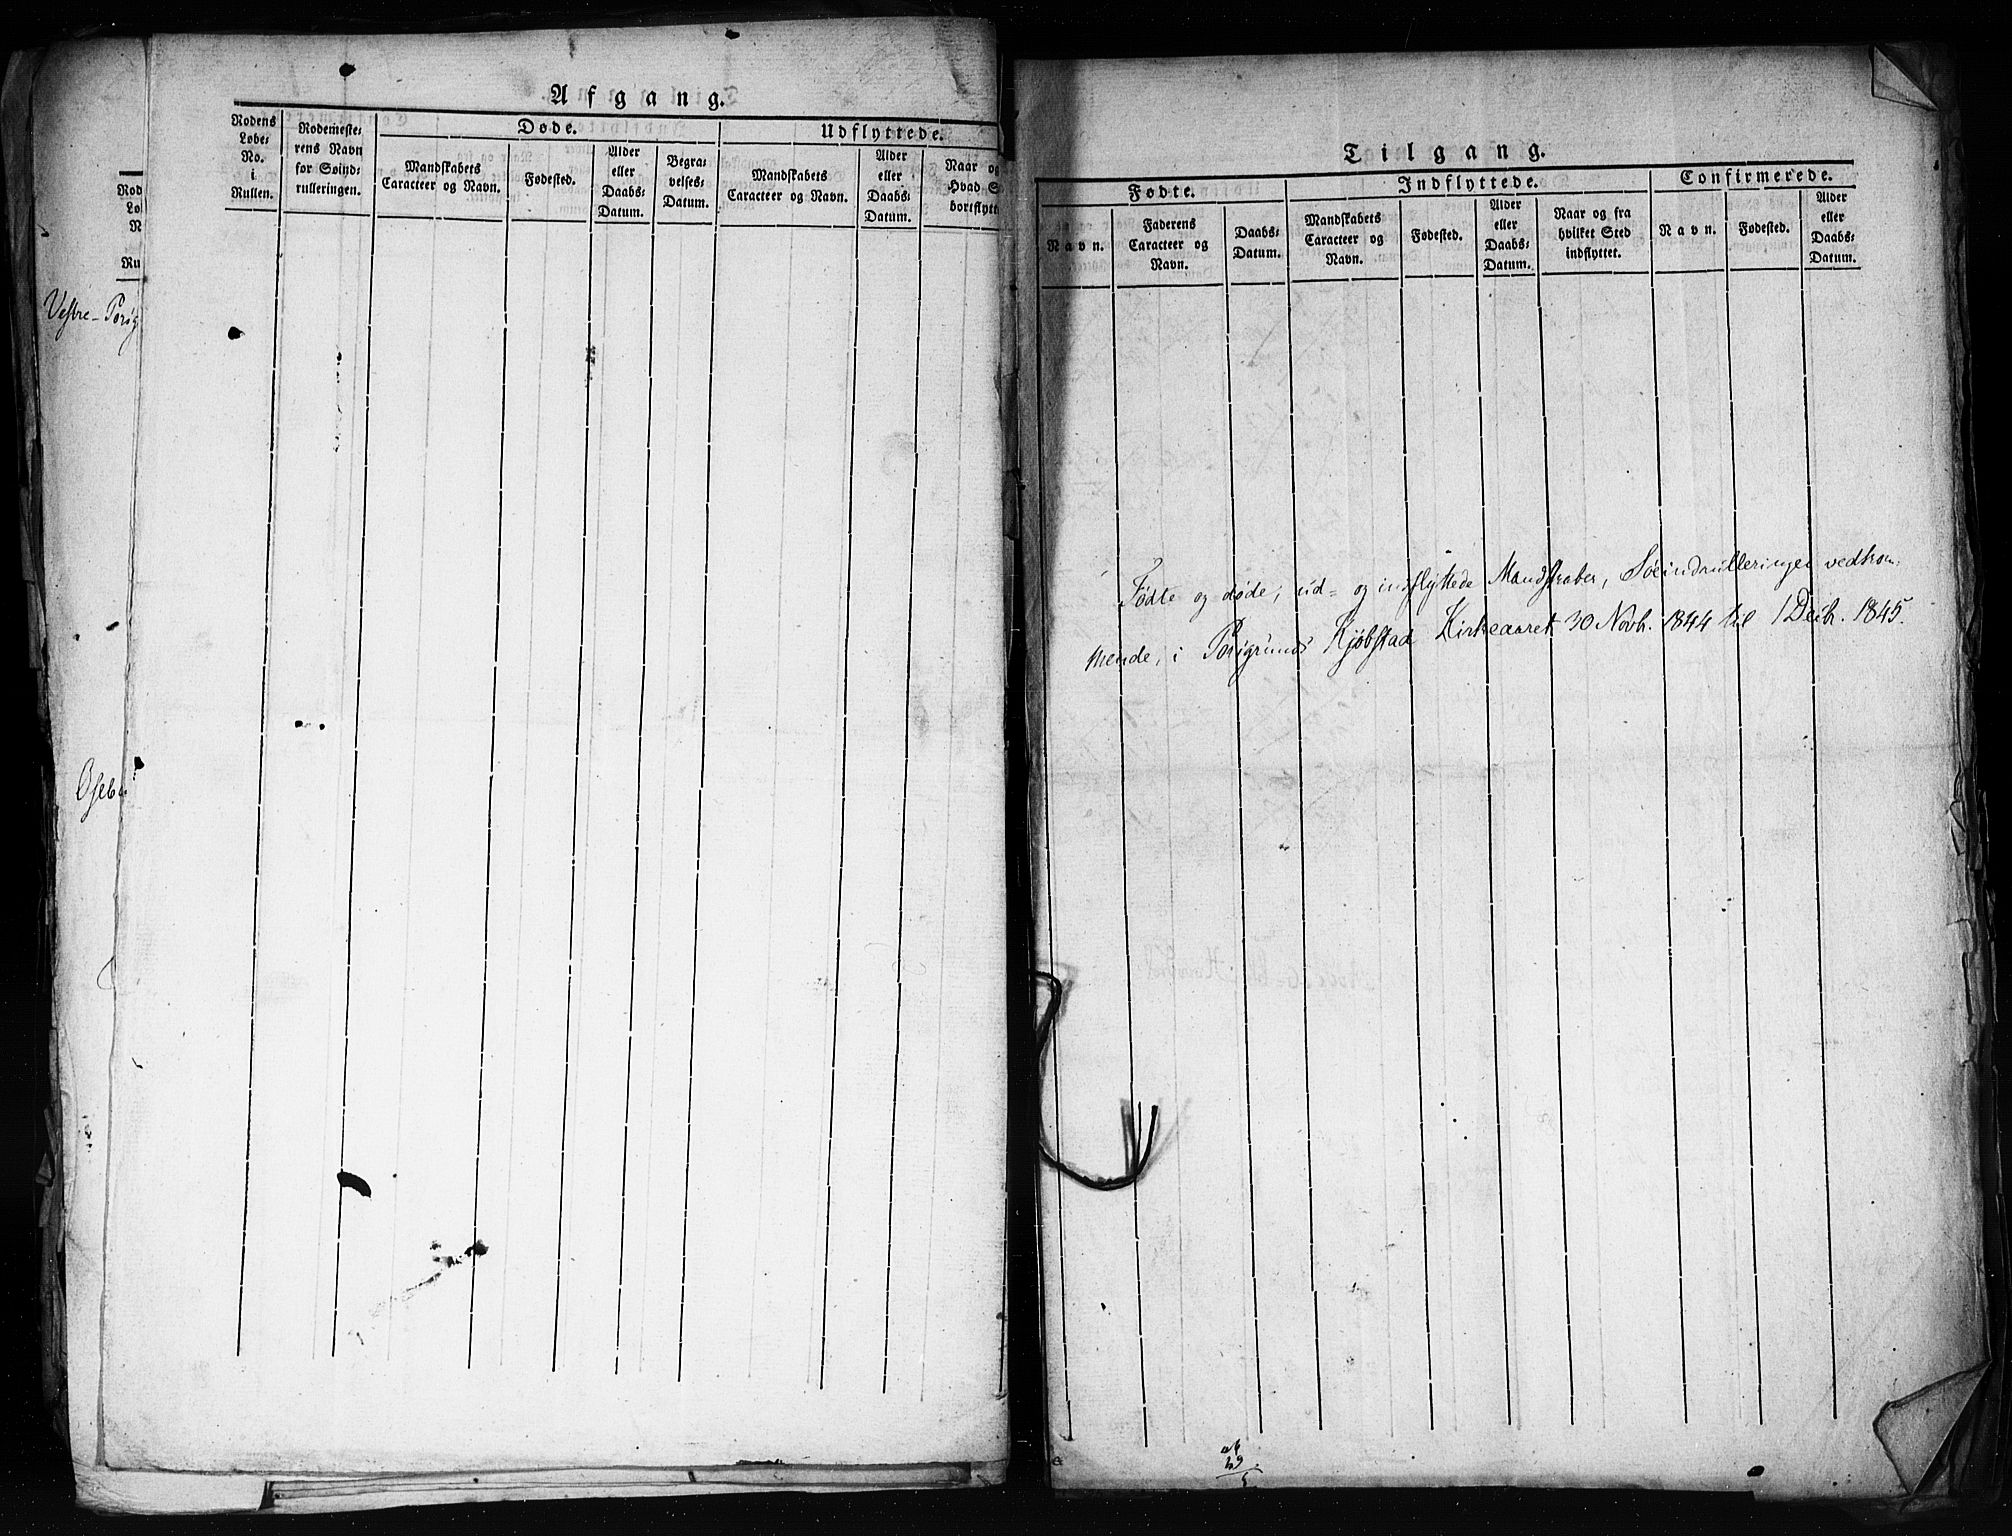 Afgang.
Rodens Løbe-No. i Rullen.
Rodemesterens Navn før Søindrulleringen.
Døde.
Mandskabets Caracteer og Navn.
Fødested.
Alder eller Daabs-Datum.
Begravelses-Datum.
Udflyttede.
Mandskabets Caracteer og Navn.
Alder eller Daabs-Datum.
Naar og
Hvad S
bortflytt
Rod
Lø
N
Ru
Vestre-Porsg
Oseba
Tilgang.
Fødte.
Navn.
Faderens Caracteer og Navn.
Daabs-Datum.
Indflyttede.
Mandskabets Caracteer og Navn.
Fødested.
Alder eller Daabs-Datum.
Naar og fra hvilket Sted indflyttet.
Confirmerede.
Navn.
Fødested.
Alder eller Daabs-Datum.
Fødte og døde, ud- og indflyttede Mandskaber, Søeindrulleringen vedkom-
mende, i Porsgrunds Kjøbstad Kirkeaaret 30 Novb. 1844 til 1 Decb. 1845.